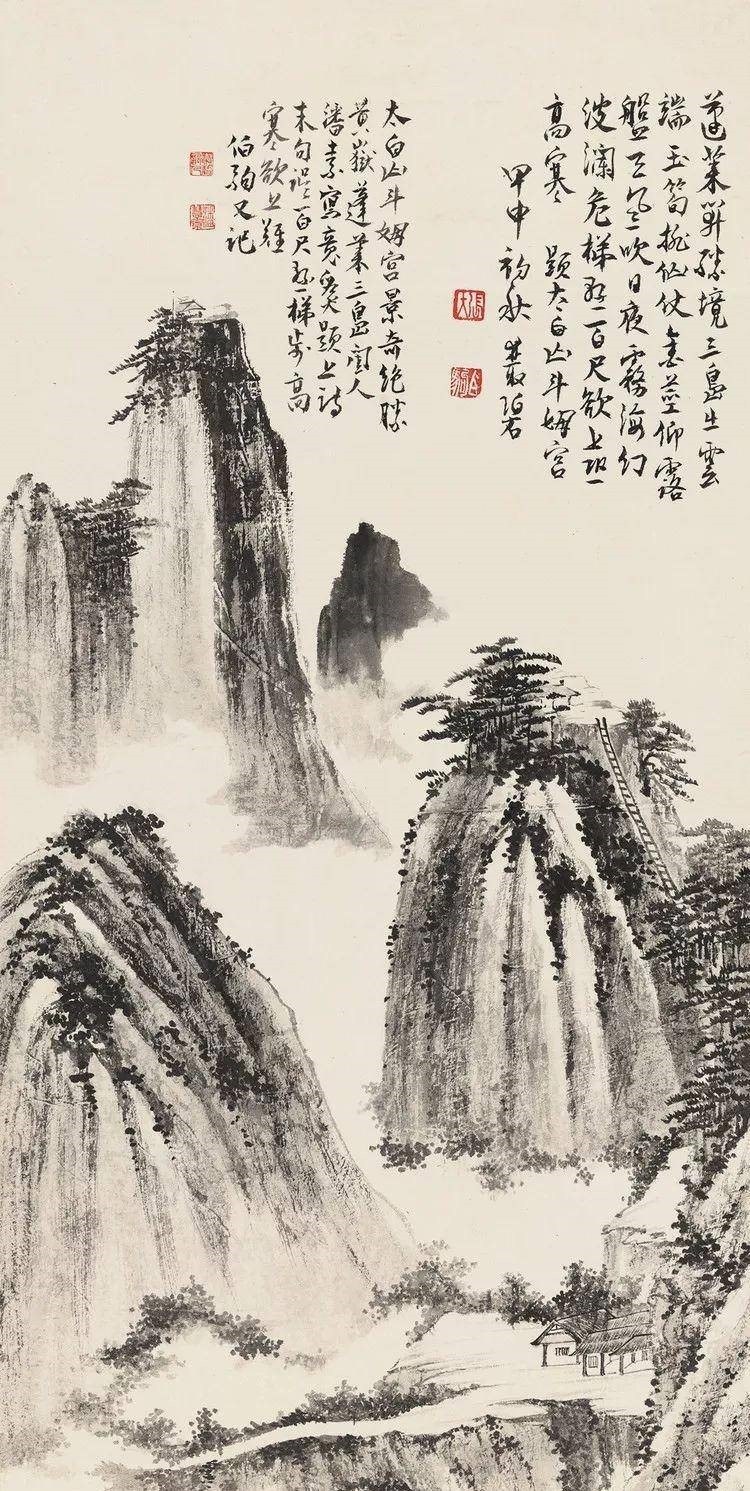 蓬萊算勝境三島生雲
端玉筍擁仙仗金莖仰露
盤天風吹日夜霧海幻
波瀾危梯一百尺欲上
高寒 題太白山斗姆宮
甲申初秋 叢碧
太白山斗姆宮景奇絕勝
黃嶽蓬萊三島室人
潘素寫竟爰題上詩
末句誤百尺危梯步高
寒欲上難
伯駒又記